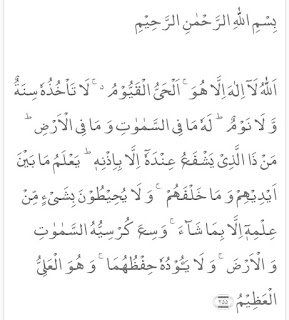 بِسْمِ اللهِ الرَّحْمٰنِ الرَّحِيْمِ
اَللهُ لَآ اِلٰهَ اِلَّا هُوَ ۚ اَلْحَىُّ الْقَيُّوْمُ ۚ لَا تَاْخُذُهٗ سِنَةٌ
وَّ لَا نَوْمٌ ؕ لَهٗ مَا فِى السَّمٰوٰتِ وَ مَا فِى الْاَرْضِ ؕ
مَنْ ذَا الَّذِىْ يَشْفَعُ عِنْدَهٗۤ اِلَّا بِاِذْنِهٖ ؕ يَعْلَمُ مَا بَيْنَ
اَيْدِيْهِمْ وَ مَا خَلْفَهُمْ ۚ وَ لَا يُحِيْطُوْنَ بِشَىْءٍ مِّنْ
عِلْمِهٖۤ اِلَّا بِمَا شَآءَ ۚ وَسِعَ كُرْسِيُّهُ السَّمٰوٰتِ
وَ الْاَرْضَ ۚ وَ لَا يَـُٔوْدُهٗ حِفْظُهُمَا ۚ وَ هُوَ الْعَلِىُّ
الْعَظِيْمُ ﴿۲۵۵﴾